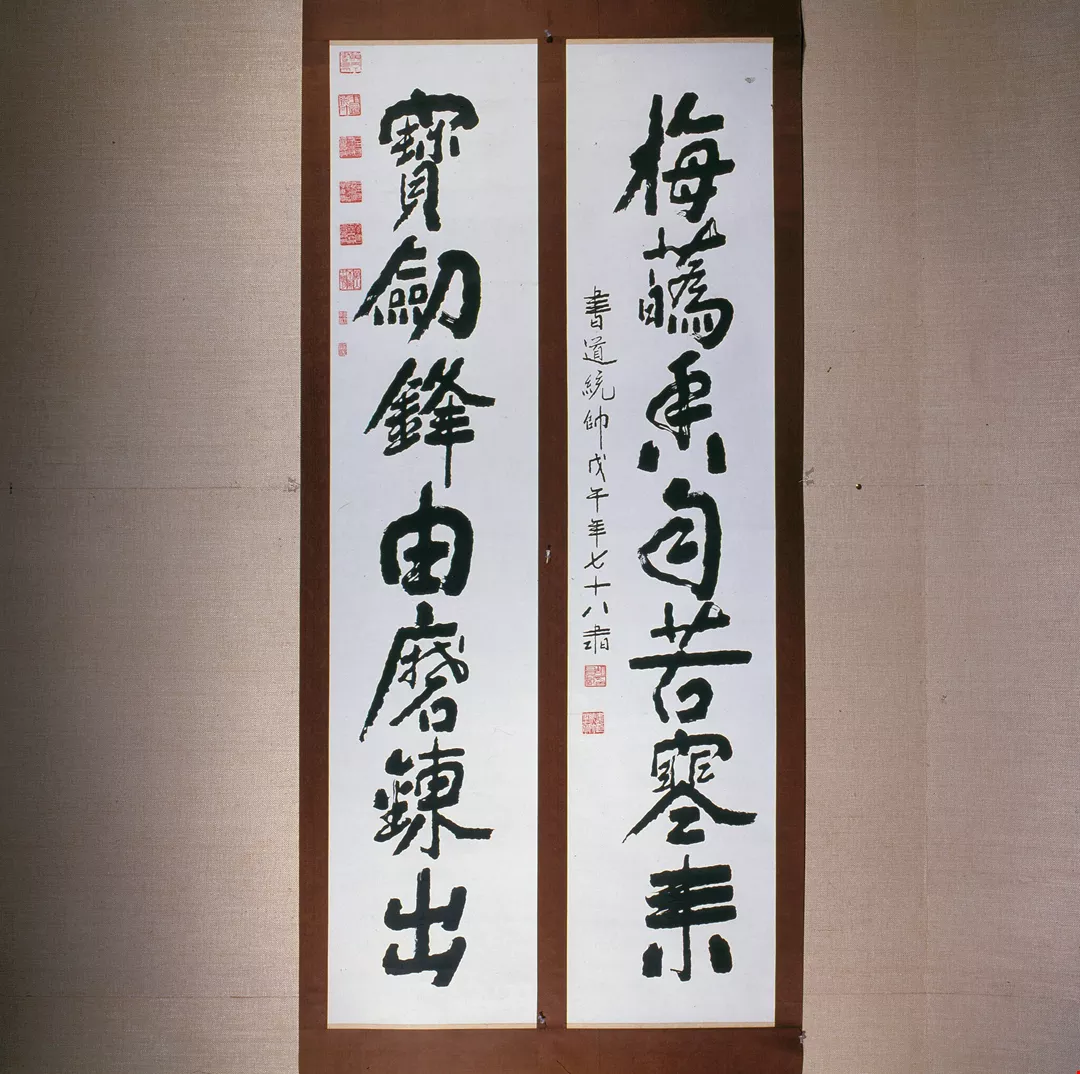 梅蘤香自苦寒來
書道統帥戊午年七十八書
寶劍鋒由磨鍊出